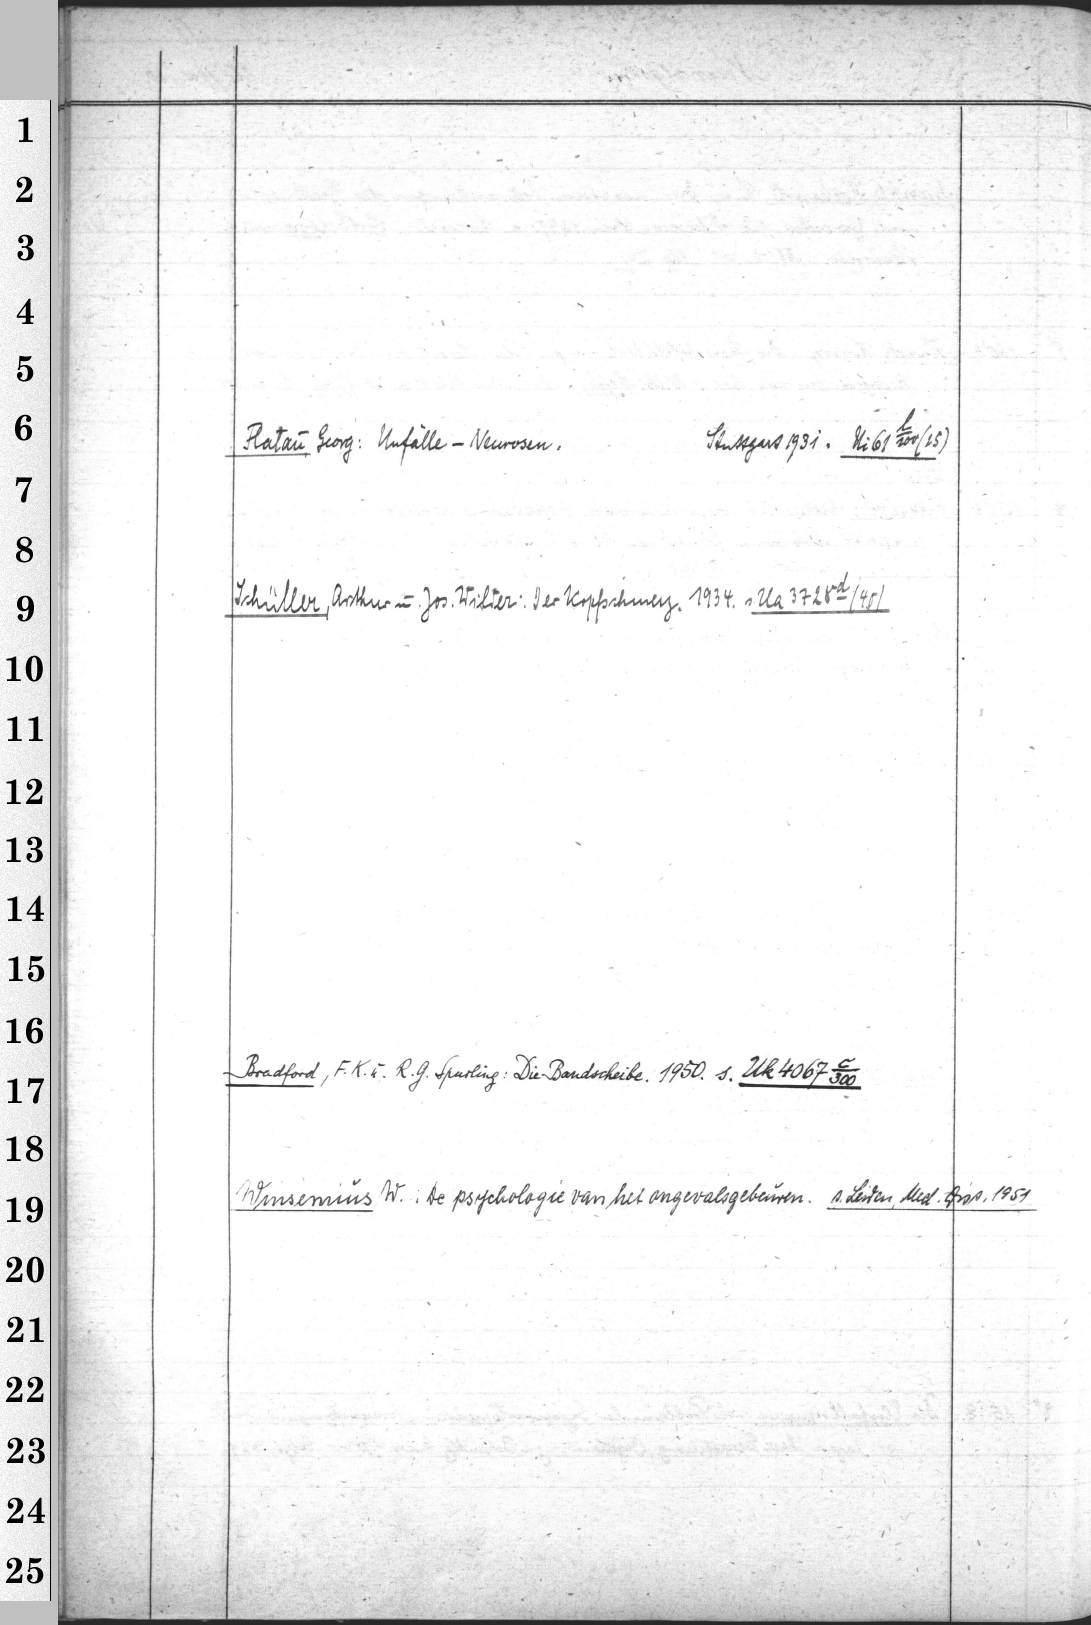 1
2
3
4
5
6
Flataū Georg: Unfälle – Neurosen. Stuttgart 1931.
7
8
9
Schüller, Arthur u. Jos. Wilder: Der Kopfschmerz. 1934. s. Ua 3728 d/(45)
10
11
12
13
14
15
16
Bradford, F. K. u. R. G. Spurling: Die Bandscheibe. 1950. s. Uk 4067 c/300
17
18
19
Winsemius W.: De psychologie van het ongevalsgebeuren. s. Leiden, Med. Diss. 1951
20
21
22
23
24
25